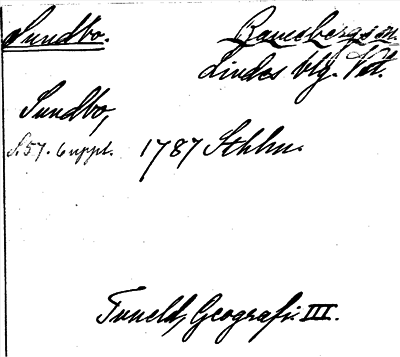 Sundbo. Ramsbergs sn.
Lindes blg. Vstm.
Sundbo,
S. 57. 6 uppl. 1787 Sthlm.
Tuneld, Geografi III.